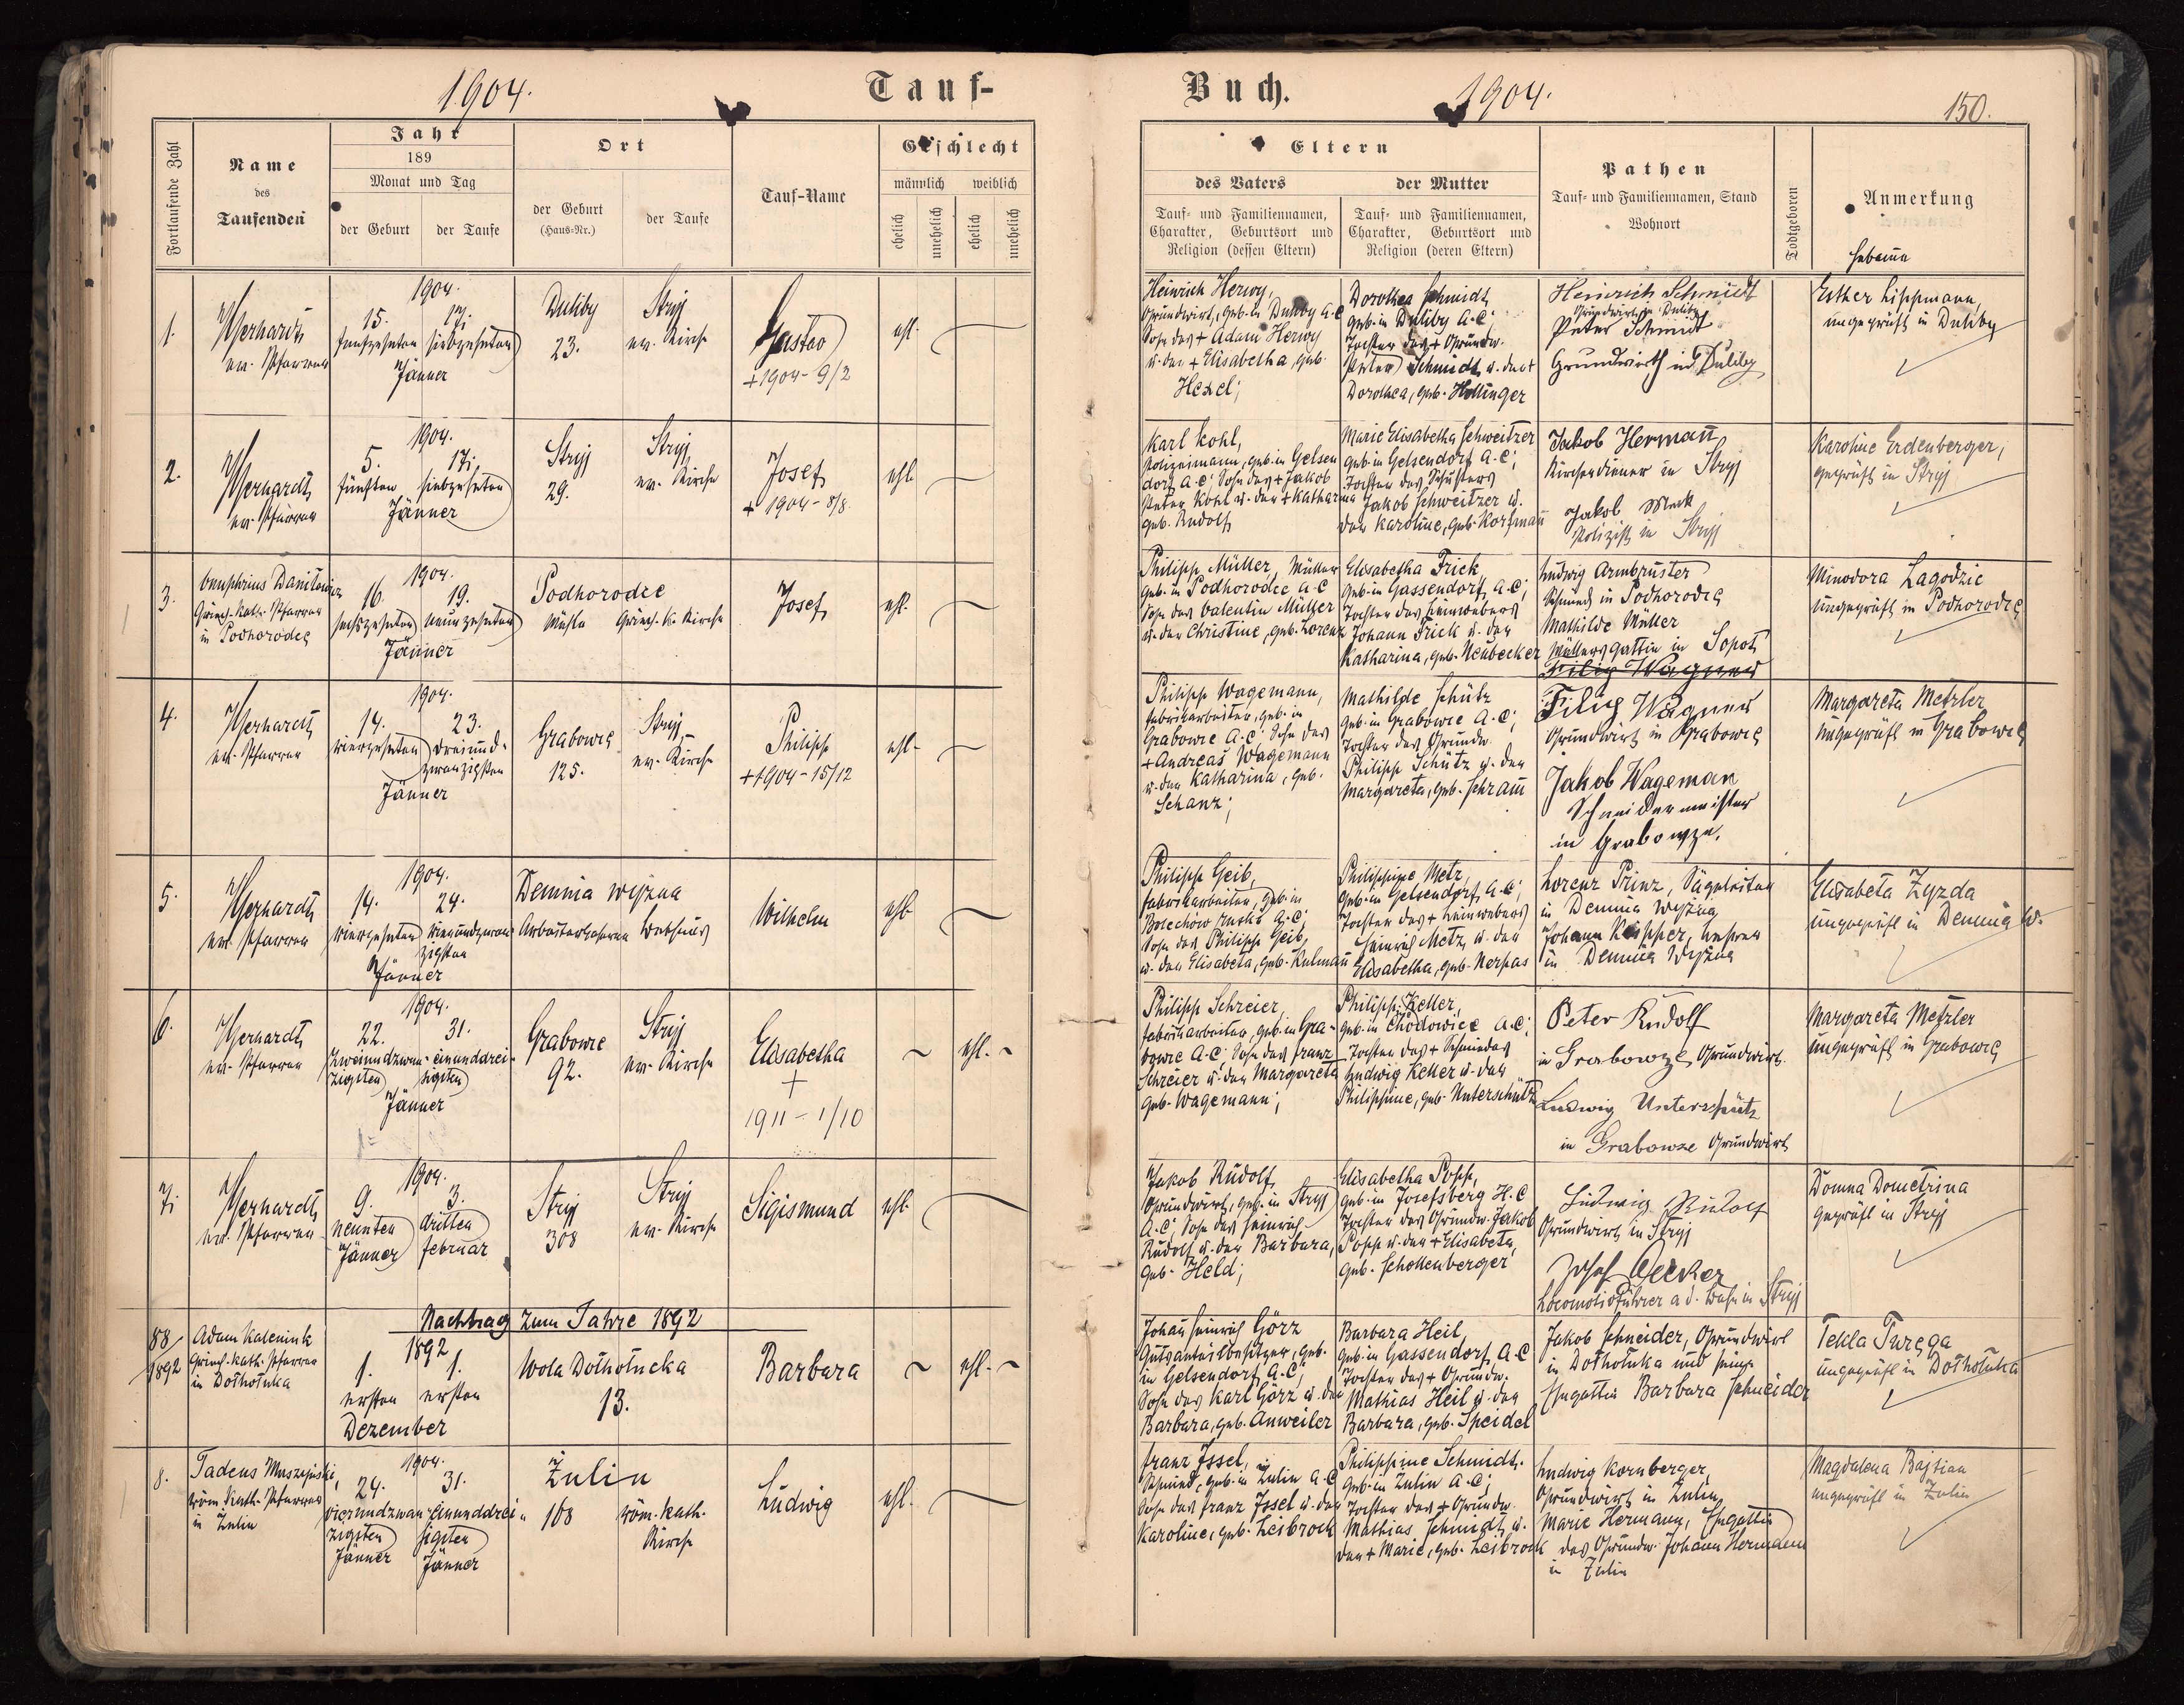 1904.
Tauf-
Buch.
1904.
150.
Fortlaufende Zahl
Name
des
Taufenden
Jahr
189
Monat und Tag
der Geburt
der Taufe
Ort
der Geburt
(Haus-Nr.)
der Taufe
Tauf-Name
Geschlecht
männlich
weiblich
ehelich
unehelich
ehelich
unehelich
Eltern
des Vaters
der Mutter
Tauf- und Familiennamen,
Charakter, Geburtsort und
Religion (dessen Eltern)
Tauf- und Familiennamen,
Charakter, Geburtsort und
Religion (deren Eltern)
Pathen
Tauf- und Familiennamen, Stand
Wohnort
Todtgeboren
Anmerkung
Hebamme
1.
ev. Pfarrer
1904.
15. 17.
fünfzehnten siebzehnten
Jänner
Duliby
23.
Stryj
ev. Kirche
Gustav
+ 1904 - 9/2
ehl.
Heinrich Herwy,
Grundwirt, geb. in Duliby A.C.
Sohn des + Adam Herwy
u. der + Elisabetha, geb.
Hexel;
Dorothea Schmidt,
geb. in Duliby A.C;
Tochter des + Grundw.
Peter Schmidt u. der +
Dorothea, geb. Hollinger
Heinrich Schmidt
Grundwirt in Duliby
Peter Schmidt
Grundwirth in Duliby
Esther Lippmann,
ungeprüft in Duliby
2.
ev. Pfarrer
1904.
5. 17.
fünften siebzehnten
Jänner
Stryj
29.
Stryj
ev. Kirche
Josef
+ 1904 - 8/8
ehl.
Karl Kohl,
Polizeimann, geb. in Gelsen
dorf A.C; Sohn des + Jakob
Peter Kohl u. der + Katharina
geb. Rudolf
Marie Elisabetha Schweitzer
geb. in Gelsendorf A.C;
Tochter des Schusters
Jakob Schweitzer u.
der Karoline, geb. Korfmann
Jakob Hermann
Kirchendiener in Stryj
Jakob Mak
Polizist in Stryj
Karoline Erdenberger,
geprüft in Stryj
3.
Griech.-kath. Pfarrer
in Podhorodce
1904.
16. 19.
sechszehnten neunzehnten
Jänner
Podhorodce
Mühle Griech. K. Kirche
Josef
ehl.
Philipp Müller, Müller
geb. in Podhorodce A.C
Sohn des Valentin Müller
u. der Christine, geb. Lorenz
Elisabetha Frick
geb. in Gassendorf A.C;
Tochter des Leinwebers
Johann Frick u. der
Katharina, geb. Neubecker
Ludwig Armbruster
Schmied in Podhorodce
Mathilde Müller
Müllersgattin in Sopot
Filip Wagner
Minodora Lagodzic
ungeprüft in Podhorodce
4.
ev. Pfarrer
1904.
14. 23.
vierzehnten dreiund-
zwanzigsten
Jänner
Grabowce
125.
Stryj
ev. Kirche
Philipp
+ 1904 - 15/12
ehl.
Philipp Wagemann,
Fabriksarbeiter, geb. in
Grabowce A.C; Sohn des
+ Andreas Wagemann
u. der Katharina, geb.
Schanz;
Mathilde Schütz
geb. in Grabowce A.C;
Tochter des Grundw.
Philipp Schütz u. der
Margareta, geb. Schramm
Filip Wagner
Grundwirt in Grabowce
Jakob Wageman
Schneidermeister
in Grabowze.
Margareta Metzler
ungeprüft in Grabowce
5.
ev. Pfarrer
1904.
14. 24.
vierzehnten vierundzwan-
zigsten
Jänner
Demnia wyżna
Wilhelm
ehl.
Philipp Geib,
Fabriksarbeiter, geb. in
Bolechów ruski A.C;
Sohn des Philipp Geib
u. der Elisabeta, geb. Kulmann
Philippine Metz,
geb. in Gelsendorf A.C;
Tochter des + Leinwebers
Heinrich Metz u. der
Elisabetha, geb. Nerpas
Lorenz Prinz, Sägeleiter
in Demnia wyżna
Johann Küpper, Lehrer
in Demnia wyżna
Elisabeta Zyzda
ungeprüft in Demnia w.
6.
ev. Pfarrer
1904.
22. 31.
zweiundzwan- einunddrei-
zigsten sigsten
Jänner
Grabowce
92.
Stryj
ev. Kirche
Elisabetha
+
1911 - 1/10
ehl.
Philipp Schreier,
Fabriksarbeiter, geb. in Gra-
bowce A.C; Sohn des Franz
Schreier u. der Margareta
geb. Wagemann;
Philipp. Keller,
geb. in Chodowice A.C;
Tochter des + Schmiedes
Ludwig Keller u. der
Philippine, geb. Unterschütz
Peter Rudolf
in Grabowze, Grundwirt.
Ludwig Unterschütz
in Grabowze Grundwirt
Margareta Metzler
ungeprüft in Grabowce
7.
ev. Pfarrer
1904.
9. 3.
neunten dritten
Jänner Februar
Stryj
308
Stryj
ev. Kirche
Sigismund
ehl.
Jakob Rudolf,
Grundwirt, geb. in Stryj
A.C; Sohn des Heinrich
Rudolf u. der Barbara,
geb. Held;
Elisabetha Popp,
geb. in Josefsberg H.C
Tochter des Grundw. Jakob
Popp u. der + Elisabeta,
geb. Schollenberger
Ludwig Rudolf
Grundwirt in Stryj
Josef Becker
Locomotivführer a d. Bahn in Stryj
Domna Dometrina
geprüft in Stryj
Nachtrag zum Jahre 1892
88/1892
Adam Kalenink
Griech.-kath. Pfarrer
in Dołhołuka
1892
1. 1.
ersten ersten
Dezember
Wola Dołhołucka
13.
Barbara
ehl.
Johann Heinrich Görz
Gutsanteilbesitzer, geb.
in Gelsendorf A.C;
Sohn des Karl Görz u. der
Barbara, geb. Anweiler
Barbara Heil,
geb. in Gassendorf A.C
Tochter des + Grundw.
Mathias Heil u. der
Barbara, geb. Speidel
Jakob Schneider, Grundwirt
in Dołhołuka und seine
Ehegattin Barbara Schneider
Tekla Turęga
ungeprüft in Dołhołuka
8.
röm. Kath. Pfarrer
in Zulin
1904.
24. 31.
vierundzwan- einunddrei-
zigsten sigsten
Jänner Jänner
Zulin
108
röm. kath.
Kirche
Ludwig
ehl.
Franz Issel,
Schmied, geb. in Zulin A.C
Sohn des Franz Issel u. der
Karoline, geb. Leibrock
Philippine Schmidt.
geb. in Zulin A.C;
Tochter des + Grundw.
Mathias Schmidt, u.
der + Marie, geb. Leibrock
Ludwig Kornberger,
Grundwirt in Zulin
Marie Hermann, Ehegattin
des Grundw. Johann Hermann
in Zulin
Magdalena Bajtian
ungeprüft in Zulin